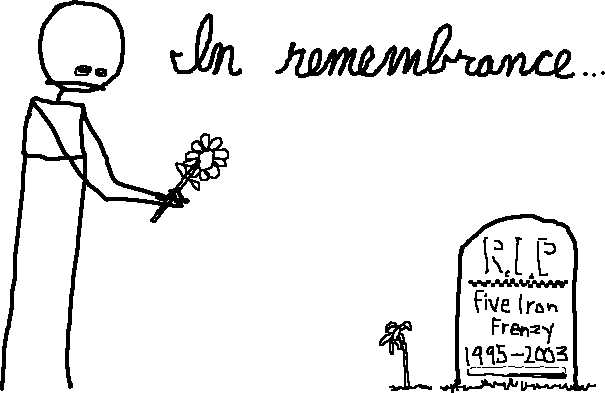 In remembrance...
R.I.P
Five Iron
Frenzy
1995-2003